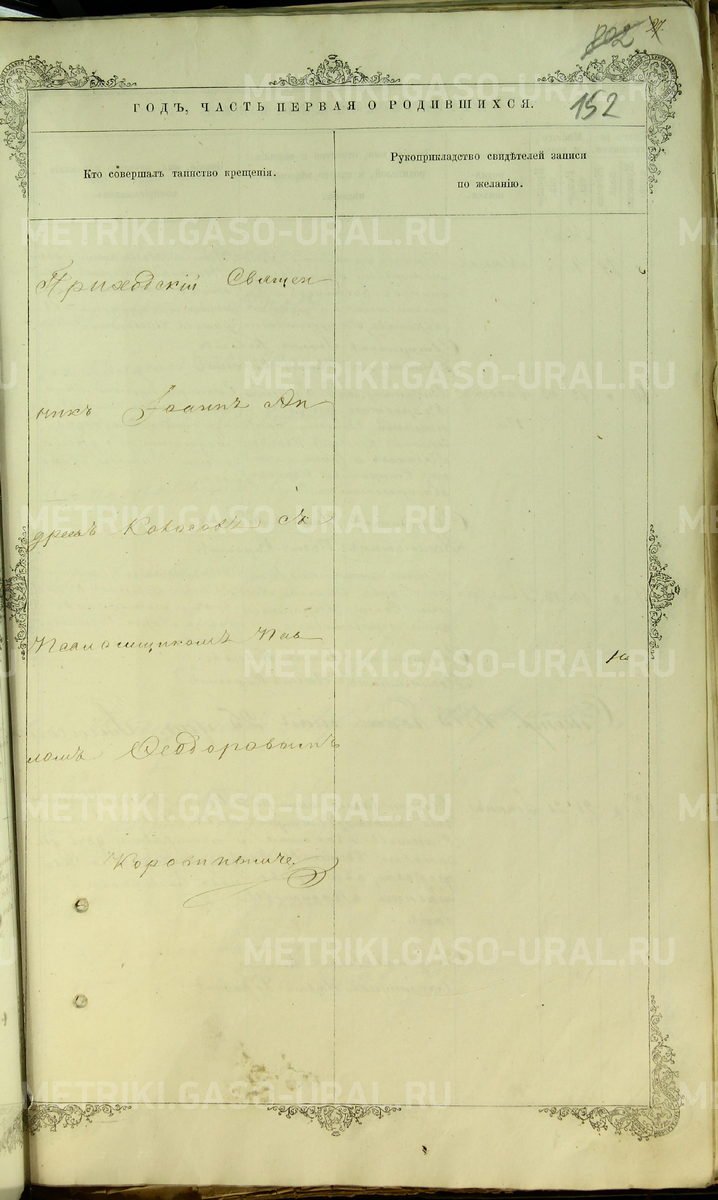 27.
202
152
ГОДЪ, ЧАСТЬ ПЕРВАЯ О РОДИВШИХСЯ.
Кто совершалъ таинство крещенія.
Рукоприкладство свидѣтелей записи
по желанію.
Приходскій Священ
никъ Іоаннъ Ан
дреевъ съ
Псаломщикомъ Пав
ломъ Ѳеодоровымъ
METRIKI.GASO-URAL.RU